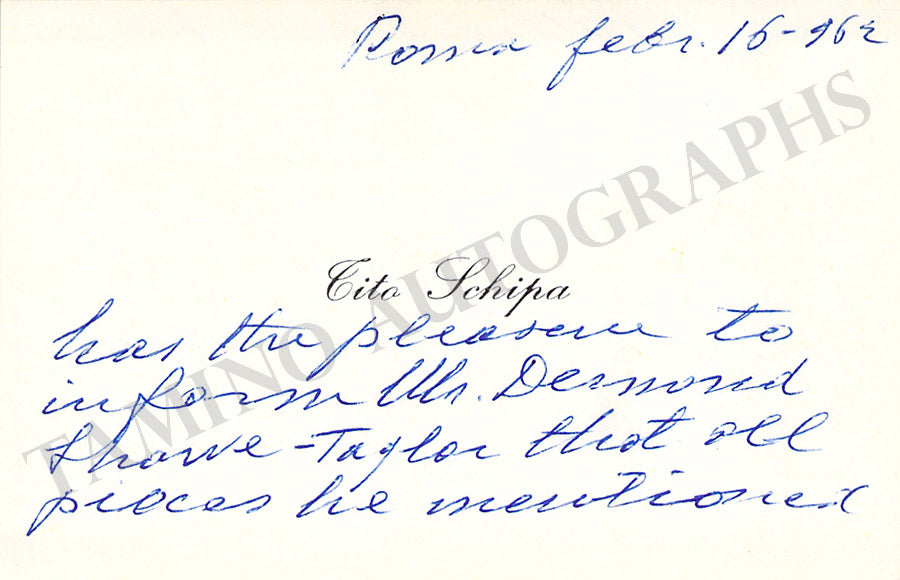 Roma febr. 16-962
Tito Schipa
has the pleasure to
inform Mr. Desmond
Shawe-Taylor that all
pieces he mentioned
TAMINO AUTOGRAPHS